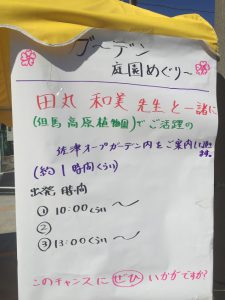 ガーデン
庭園めぐり〜
田丸 和美 先生と一緒に
(但馬高原植物園)でご活躍の
佐津オープンガーデン内をご案内します。
(約1時間くらい)
出発時間
① 10:00くらい〜
②
③ 13:00くらい〜
このチャンスに ぜひ いかがですか?